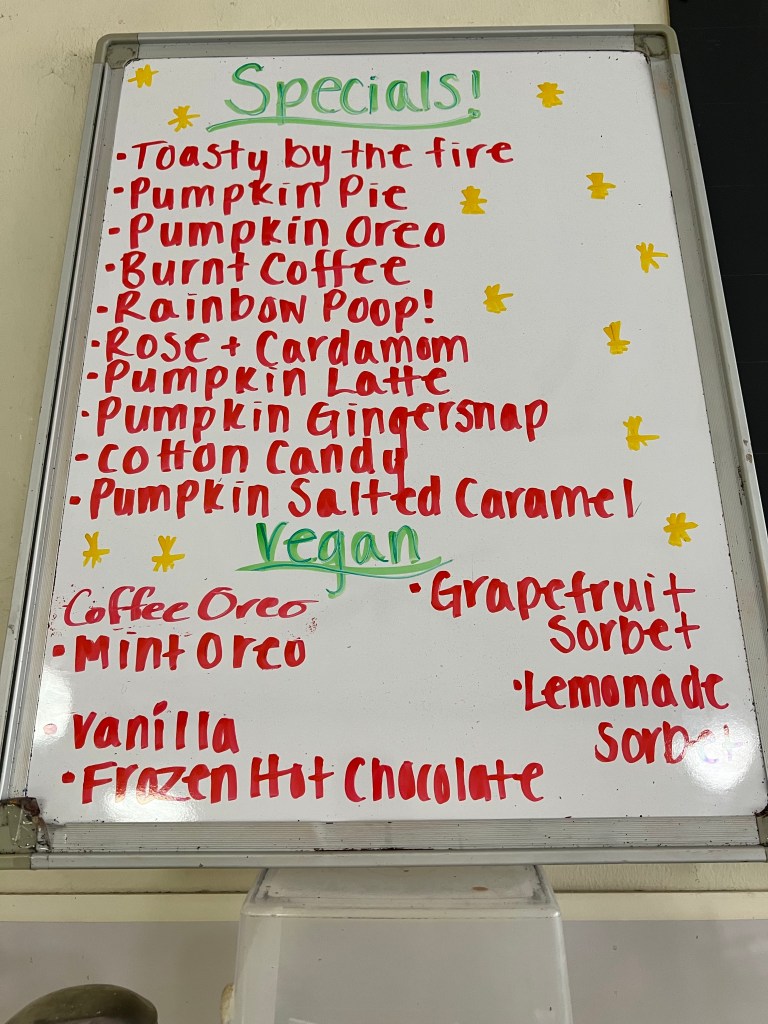 Specials!
• Toasty by the fire
• Pumpkin Pie
• Pumpkin Oreo
• Burnt Coffee
• Rainbow Poop!
• Rose + Cardamom
• Pumpkin Latte
• Pumpkin Gingersnap
• Cotton Candy
• Pumpkin Salted Caramel
Vegan
Coffee Oreo
• Mint Oreo
• Vanilla
• Frozen Hot Chocolate
• Grapefruit
Sorbet
• Lemonade
Sorbet